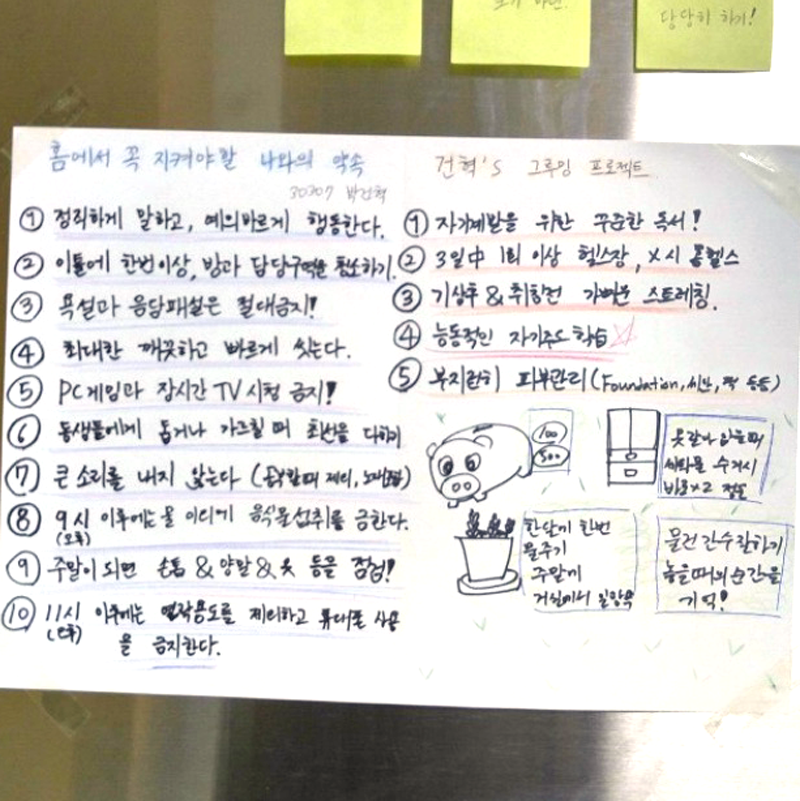 당당히 하기!
홈에서 꼭 지켜야할 나와의 약속
30307 박건혁
① 정직하게 말하고, 예의바르게 행동한다.
② 이틀에 한번이상, 방과 담당구역을 청소하기.
③ 욕설과 음담패설은 절대금지!
④ 최대한 깨끗하고 빠르게 씻는다.
⑤ PC게임과 장시간 TV시청 금지!
⑥ 동생들에게 돕거나 가르칠 때 최선을 다하기
⑦ 큰 소리를 내지 않는다 (제외,
⑧ 9시 이후에는 물 이외에 음식물섭취를 금한다.
(오후)
⑨ 주말이 되면 손톱 & 양말 & 옷 등을 점검!
⑩ 11시 이후에는 제외하고 휴대폰 사용
(오후)
을 금지한다.
건혁's 그루밍 프로젝트
① 자기계발을 위한 꾸준한 독서!
② 3일中 1회 이상 헬스장, X시 홈헬스
③ 기상후 & 취침전 가벼운 스트레칭.
④ 능동적인 자기주도학습
⑤ 부지런히 피부관리 (Foundation, 씨잔, 팩 등등)
100
500
수거시
한달에 한번
물주기
주말에
거실에서 일광욕
물건 간수잘하기
놓을때의 순간을
기억!